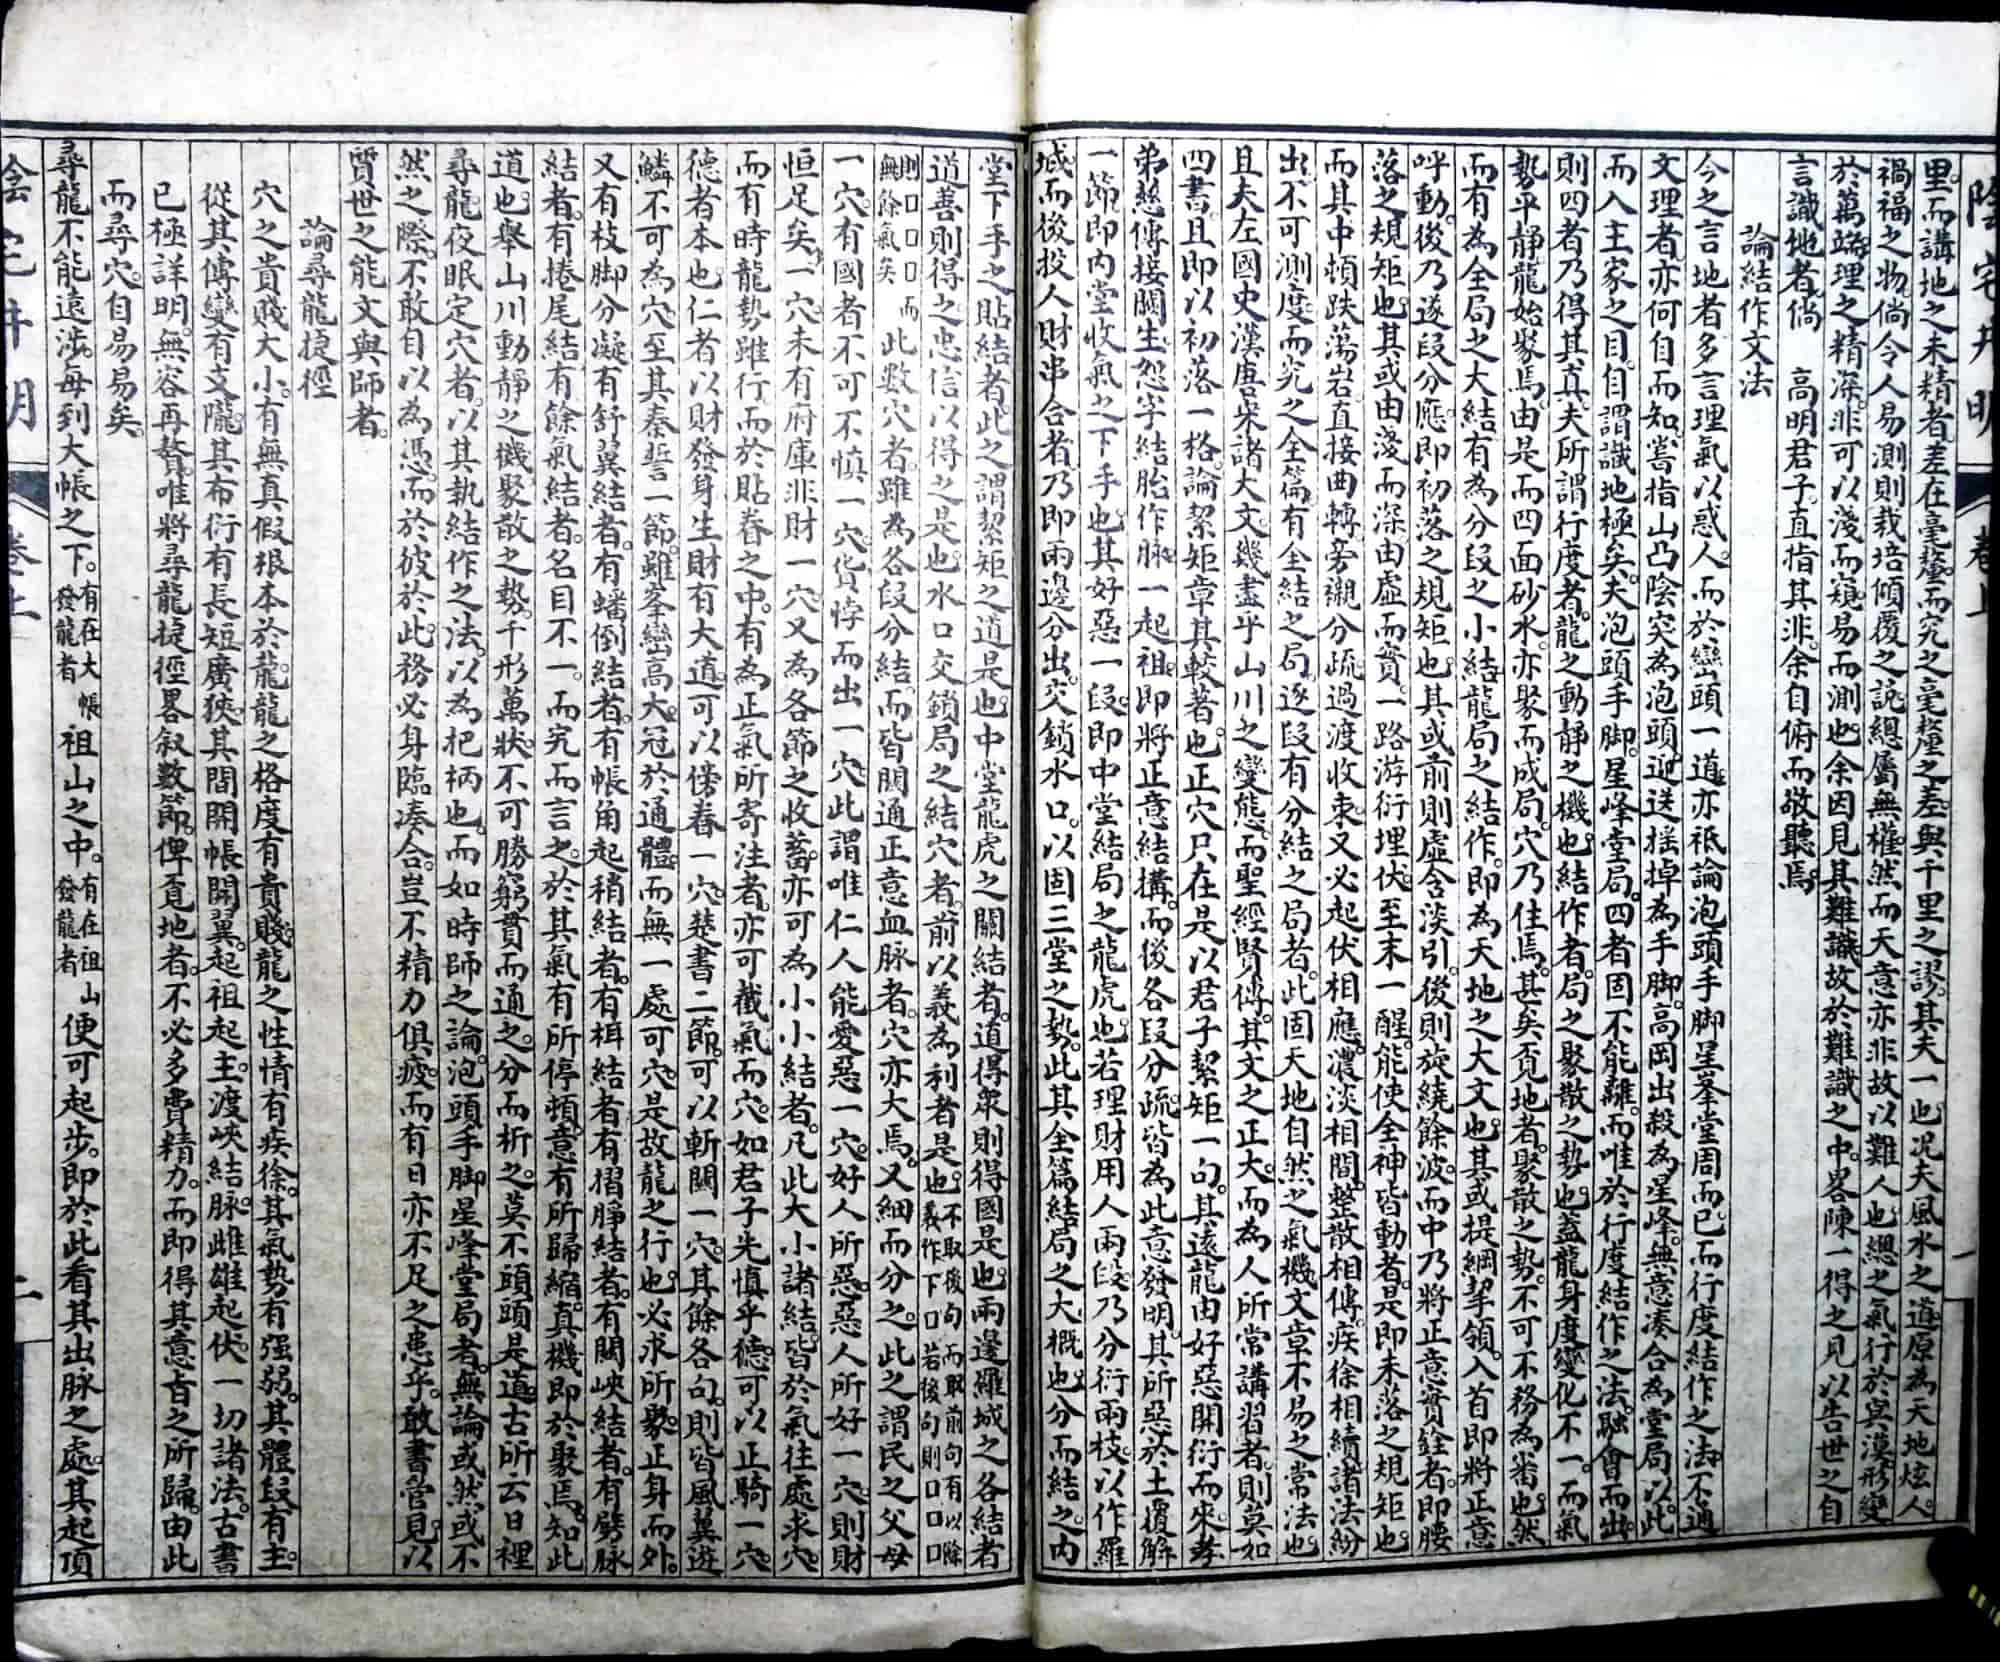 陰宅井明 卷上 一
里而講地之未精者差在毫釐而究之毫釐之差與千里之謬其夫一也况夫風水之道原為天地炫人
禍福之物倘令人易測則栽培傾覆之說總屬無權然而天意亦非故以難人也總之氣行於㝠漠形變
於萬端理之精深非可以淺而窺易而測也余因見其難識故於難識之中畧陳一得之見以告世之自
言識地者倘 高明君子直指其非余自俯而敬聽焉
論結作文法
今之言地者多言理氣以惑人而於巒頭一道亦袛論泡頭手脚星峯堂周而已而行度結作之法不通
文理者亦何自而知嘗指山凸陰突為泡頭迎送揺掉為手脚高岡出殺為星峰無意湊合為堂局以此
而入主家之目自謂識地極矣夫泡頭手脚星峰堂局四者固不能離而唯於行度結作之法融會而出
則四者乃得其真夫所謂行度者龍之動静之機也結作者局之聚散之勢也盖龍身度變化不一而氣
勢平静龍始聚焉由是而四面砂水亦聚而成局穴乃住焉甚矣覔地者聚散之勢不可不務為審也然
而有為全局之大結有為分段之小結龍局之結作即為天地之大文也其或提綱挈領入首即將正意
呼動後乃遂段分應即初落之規矩也其或前則虛含淡引後則旋繞餘波而中乃將正意實銓者即腰
落之規矩也其或由淺而深由虛而實一路游衍埋伏至末一醒能使全神皆動者是即末落之規矩也
而其中頓跌蕩岩直接曲轉旁襯分疏過渡收束又必起伏相應濃淡相間整散相傳疾徐相續諸法紛
出不可測度而究之全篇有全結之局逐段有分結之局者此固天地自然之氣機文章不易之常法也
且夫左國史漢唐宋諸大文幾盡乎山川之變態而聖經賢傳其文之正大而為人所常講習者則莫如
四書且即以初落一格論絜矩章其較著也正穴只在是以君子絜矩一句其遠龍由好惡開衍而來孝
弟慈傳接闗生恕字結胎作脉一起祖即將正意結搆而後各段分疏皆為此意發明其所惡於上覆解
一節即内堂收氣之下手也其好惡一段即中堂結局之龍虎也若理財用人兩段乃分衍兩枝以作羅
城而後投人財串合者乃即兩邊分出交鎖水口以固三堂之勢此其全篇結局之大概也分而結之内
堂下手之貼結者此之謂絜矩之道是也中堂龍虎之關結者道得衆則得國是也兩邊羅城之各結者
道善則得之忠信以得之是也水口交鎖局之結穴者前以義為利者是也不取後句而取前句有以餘義作下口若後句則口口口
則口口口而無餘氣矣此數穴者雖為各段分結而皆關通正意血脉者穴亦大焉又細而分之此之謂民之父母
一穴有國者不可不慎一穴貨悖而出一穴此謂唯仁人能愛惡一穴好人所惡惡人所好一穴則財
恒足矣一穴未有府庫非財一穴又為各節之收蓄亦可為小小結者凡此大小諸結皆於氣往處求穴
而有時龍勢雖行而於貼脊之中有為正氣所寄注者亦可截氣而穴如君子先慎乎德可以正騎一穴
德者本也仁者以財發身生財有大道可以傍春一穴楚書二節可以斬關一穴其餘各句則皆風翼遊
鱗不可為穴至其秦誓一節雖峯巒高大冠於通體而無一處可穴是故龍之行也必求所聚正身而外
又有枝脚分凝有舒翼結者有蟠倒結者有帳角起稍結者有楫結者有摺脝結者有關峽結者有劈脉
結者有捲尾結有餘氣結者名目不一而究而言之於其氣有所停頓意有所歸縮真機即於聚焉知此
道也舉山川動静之機聚散之勢千形萬狀不可勝窮貫而通之分而析之莫不頭頭是道古所云日裡
尋龍夜眠定穴者以其執結作之法以為把柄也而如時師之論泡頭手脚星峰堂局者無論或然或不
然之際不敢自以為憑而於彼於此務必身臨湊合豈不精力俱疲而有日亦不足之患乎敢書管見以
質世之能文與師者
論尋龍捷徑
穴之貴賤大小有無真假根本於龍龍之格度有貴賤龍之性情有疾徐其氣勢有强弱其體段有主
從其傳變有支隴其布衍有長短廣狹其間開帳開翼起祖起主渡峽結脉雌雄起伏一切諸法古書
已極詳明無容再贅唯將尋龍捷徑畧叙數節俾覔地者不必多費精力而即得其意旨之所歸由此
而尋穴自易易矣
尋龍不能遠涉每到大帳之下有在大帳發龍者祖山之中有在祖山發龍者便可起步即於此看其出脉之處其起頂
陰宅井明 卷上 二